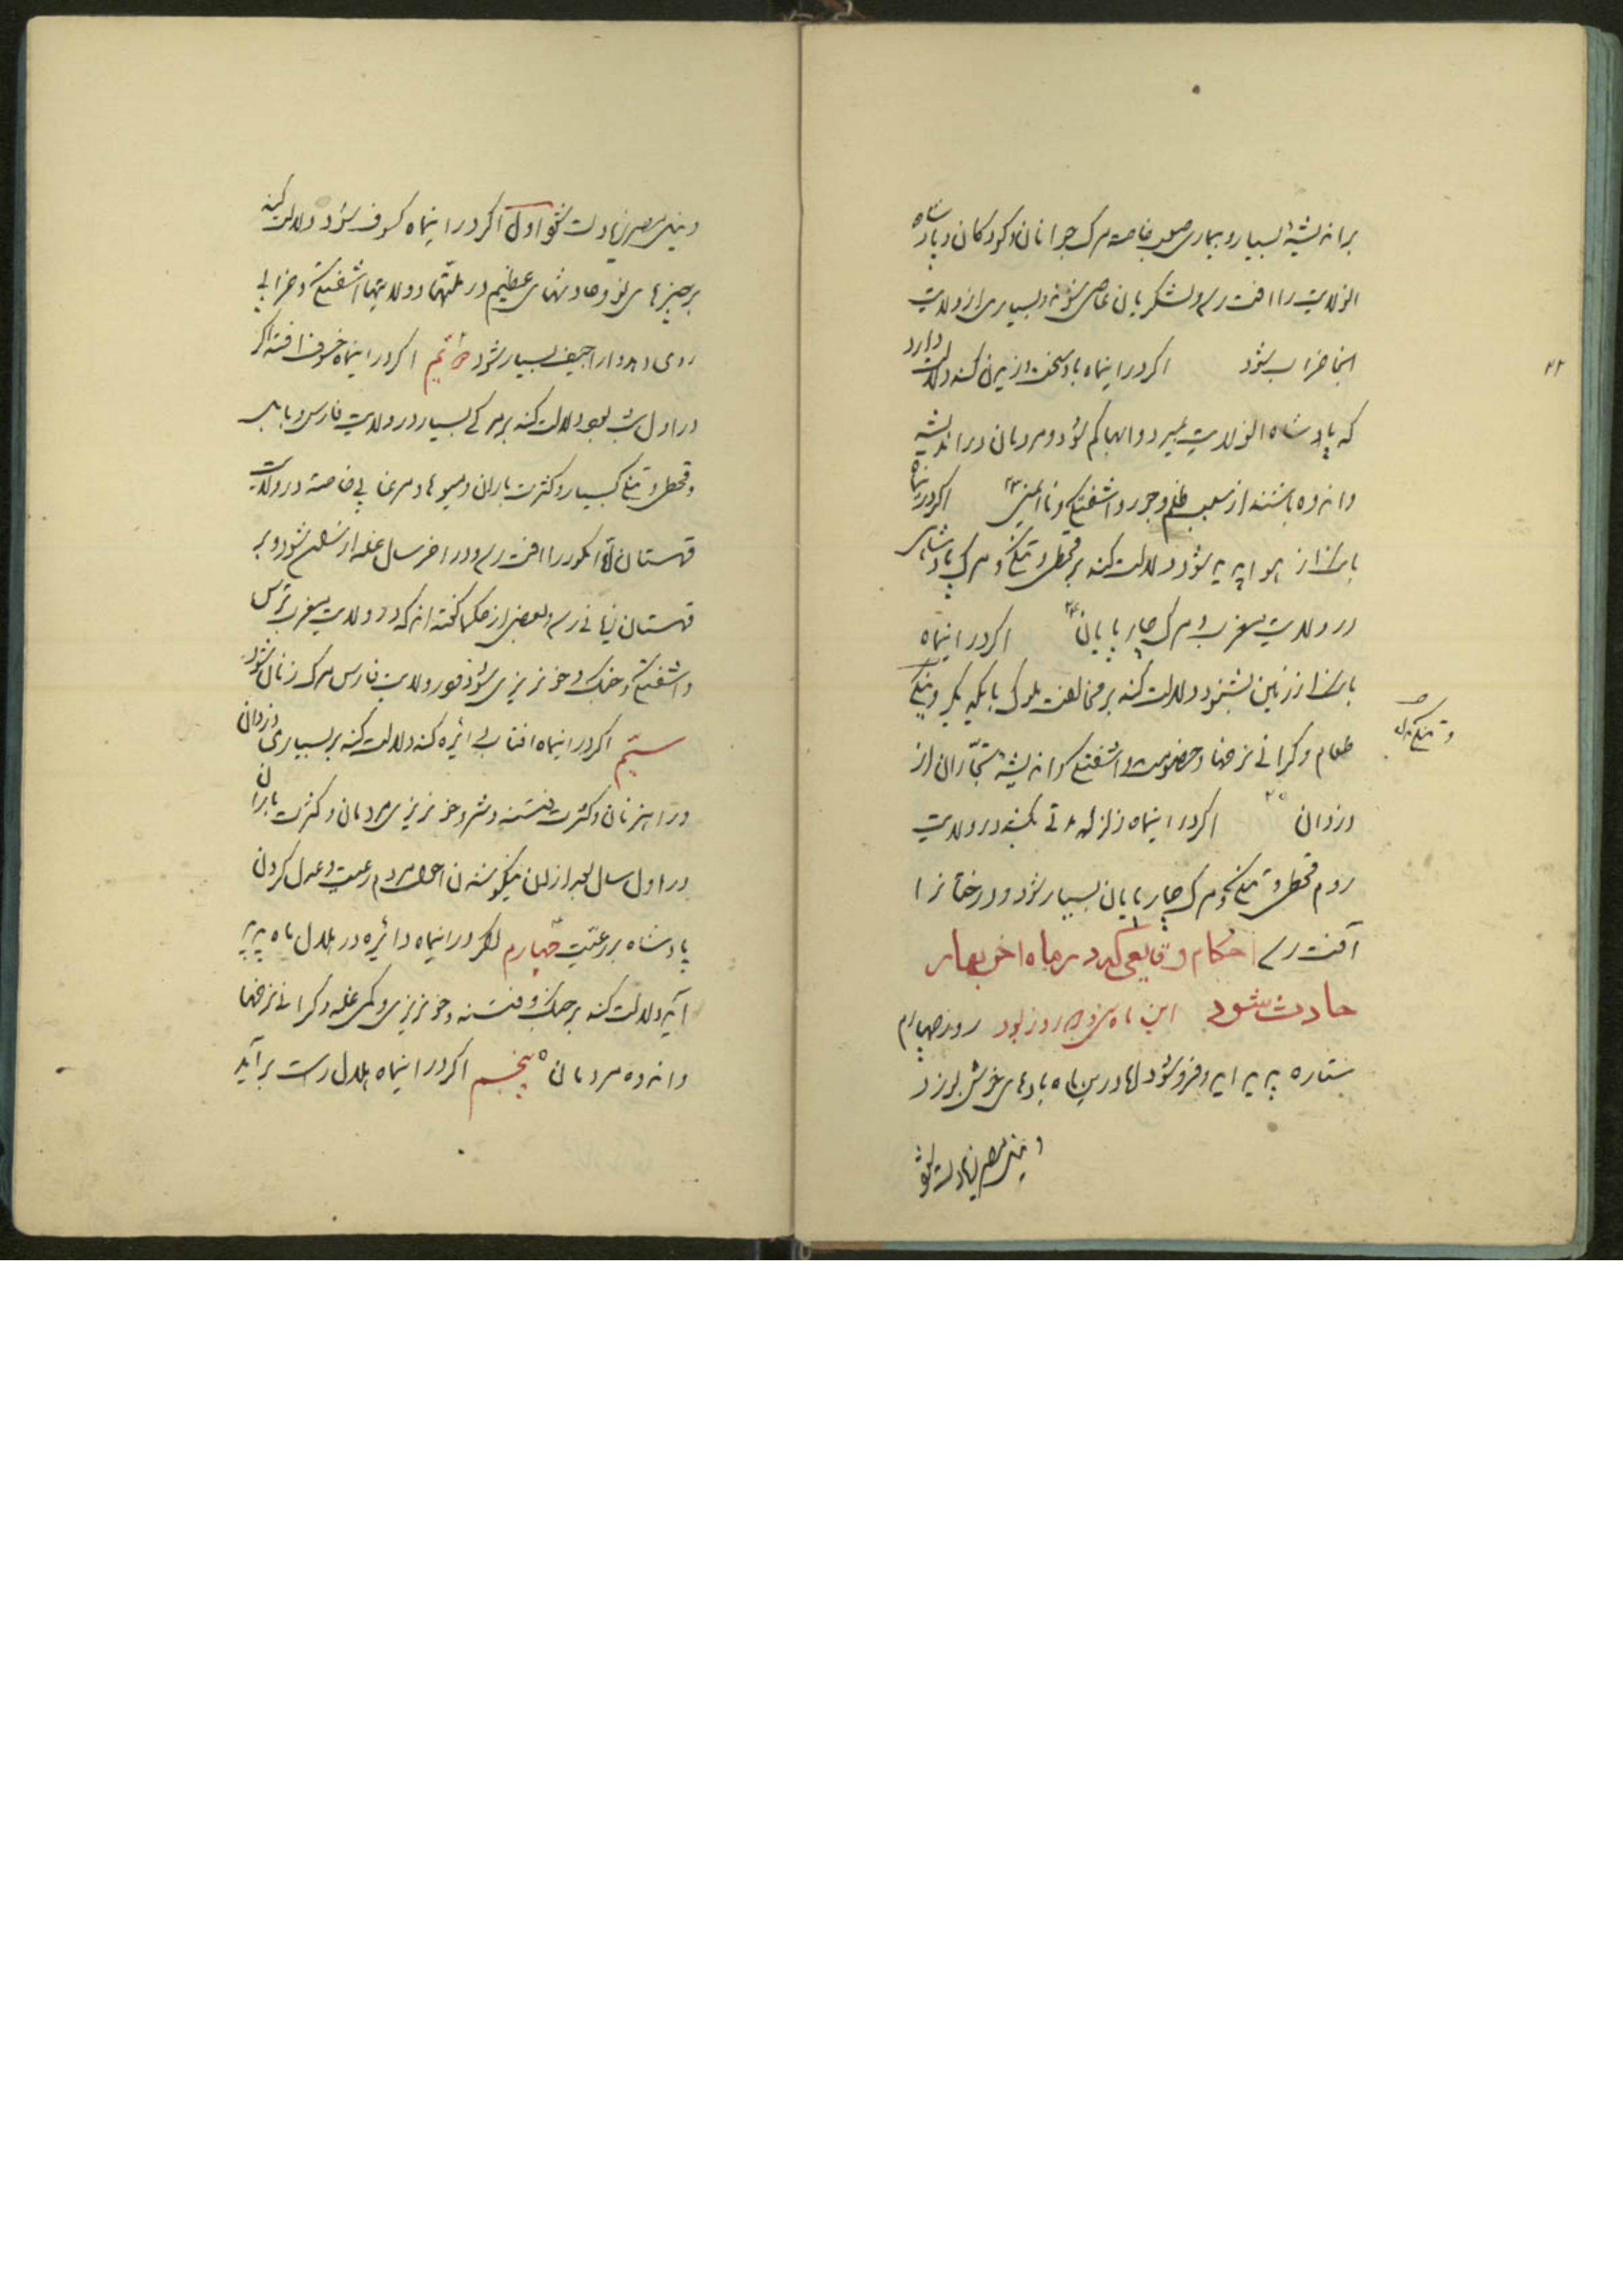 بر اندیشهٔ بسیار و بیماری صعب خاصه مرک جوانان و کودکان و پادشاه
انولایت را افت رسد و لشکریان عاصی شوند و بسیاری از ولایت
انجا خراب شود اکر در اینماه باد سخت وزیدن کند دلالت دارد
که پادشاه انولایت بمیرد و ابها کم شود و مردمان در اندیشه
و اندوه باشند از سبب ظلم و جور و اشفتکی و ناایمنی ۲۳ اکر در اینماه
بانک از هوا پدید شود دلالت کند بر قحطی و تنکی و مرک پادشاهی
در ولایت مغرب و مرک چارپایان ۲۴ اکر در اینماه
بانک از زمین بشنود دلالت کند بر مخالفت ملوک با یکدیکر و تنکی
طعام و کرانی نرخها و خصومت و اشفتکی و اندیشه تجّاران از
دزدان ۲۵ اکر در اینماه زلزله در ولایت
روم قحطی و تنکی و مرک چارپایان بسیار شود و درختانرا
آفت رسد احکام وقایعی که در ماه اخر بهار
حادث شود این ماه سی و روز بود روز چهارم
ستاره پدید اید و فرو شود اما درین ماه بادهای خوش بوزد
و نیل مصر زیادت شود
۲۲
و نیل مصر زیادت شود اول اکر در اینماه کسوف شود دلالت کند
بر چیزهای نو و حادثهای عظیم در ملتها و ولایتها اشفتکی و خرابی
روی دهد و اراجیف بسیار شود دوّیم اکر در اینماه خسوف افتد اکر
در اول شب بود دلالت کند بر مرکی بسیار در ولایت فارس و بابل
و قحطی و تنکی بسیار و کثرت باران و میوها و مرغابی خاصه در ولایت
قهستان و انکور را افت رسد و در اخر سال غله ارزان شود و بر
قهستان زیانی رسد و بعضی از حکما کفته اند که در ولایت مغرب ترس
و اشفتکی و جنک و خونریزی شود و در ولایت فارس مرک زنان شود
سیّم اکر در اینماه افتاب دایره کند دلالت کند بر بسیاری دزدان
و راهزنان و کثرت فتنه و شر و خونریزی مردمان و کثرت باران
در اول سال بعد از ان نیکو شدن احوال مردم رعیت و عدل کردن
پادشاه بر رعیّت چهارم اکر در اینماه دائره در هلال ماه پدید
آید دلالت کند بر جنک و فتنه و خونریزی و کمی غله و کرانی نرخها
و اندوه مردمان ۵ پنجم اکر در اینماه هلال راست برآید